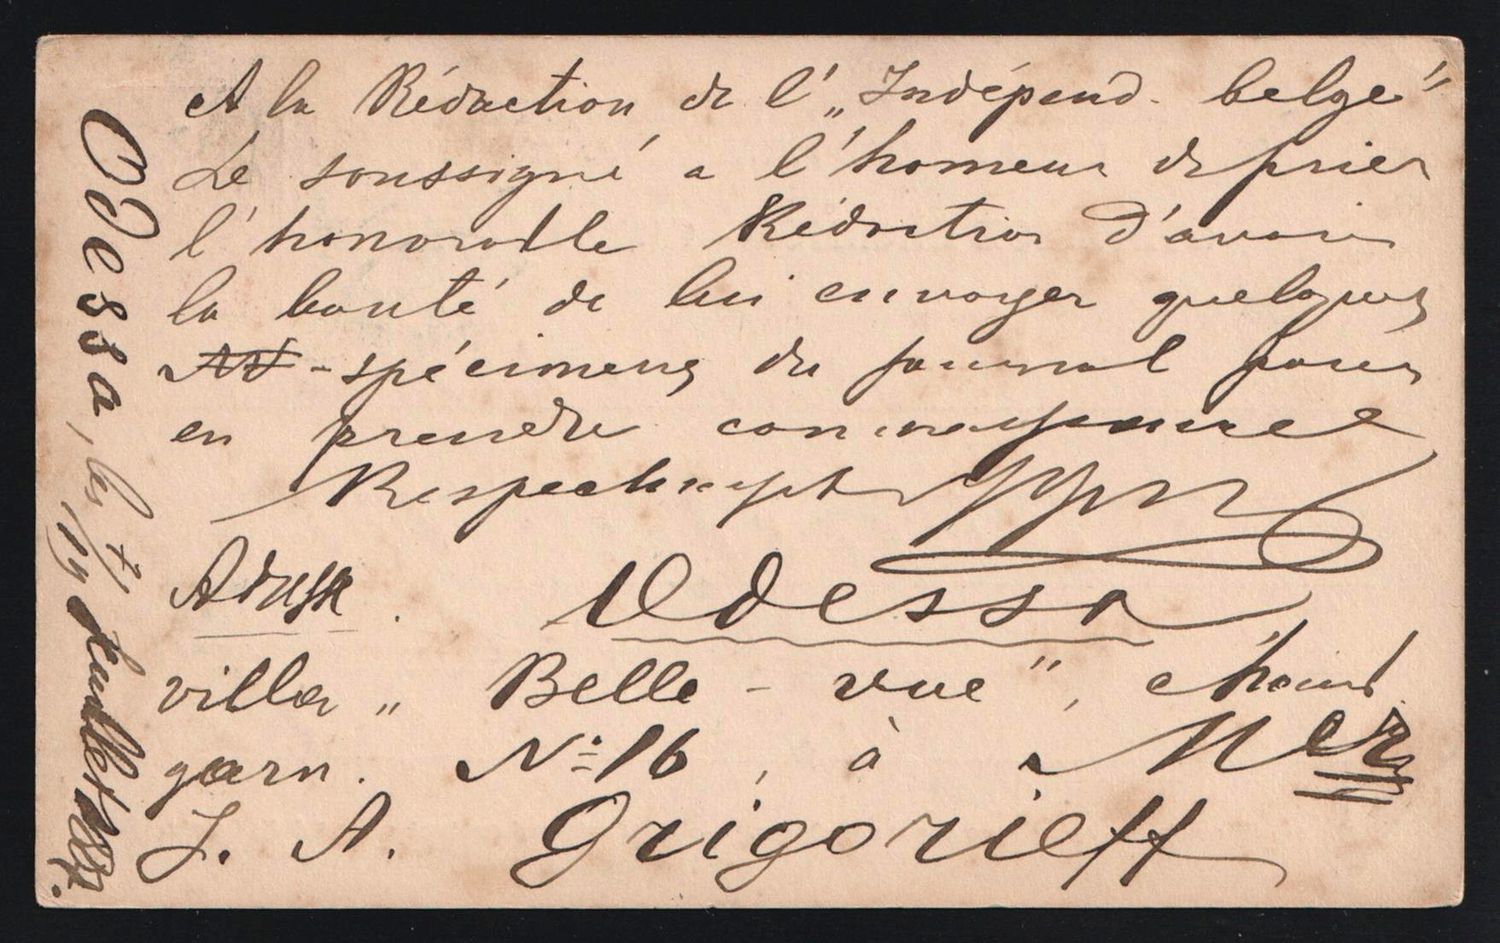 A la Rédaction de l' „Indépend. belge"
Le soussigné a l'honneur de prier
l'honorable Rédaction d'avoir
la bonté de lui envoyer quelques
- spécimens du journal pour
en prendre connaissance
Respectueusement
Adresse. Odessa
villa „Belle - vue", chamb
garn. № 16, à
J. A. Grigorieff
Odessa, les 7/19 Juillet 1887.